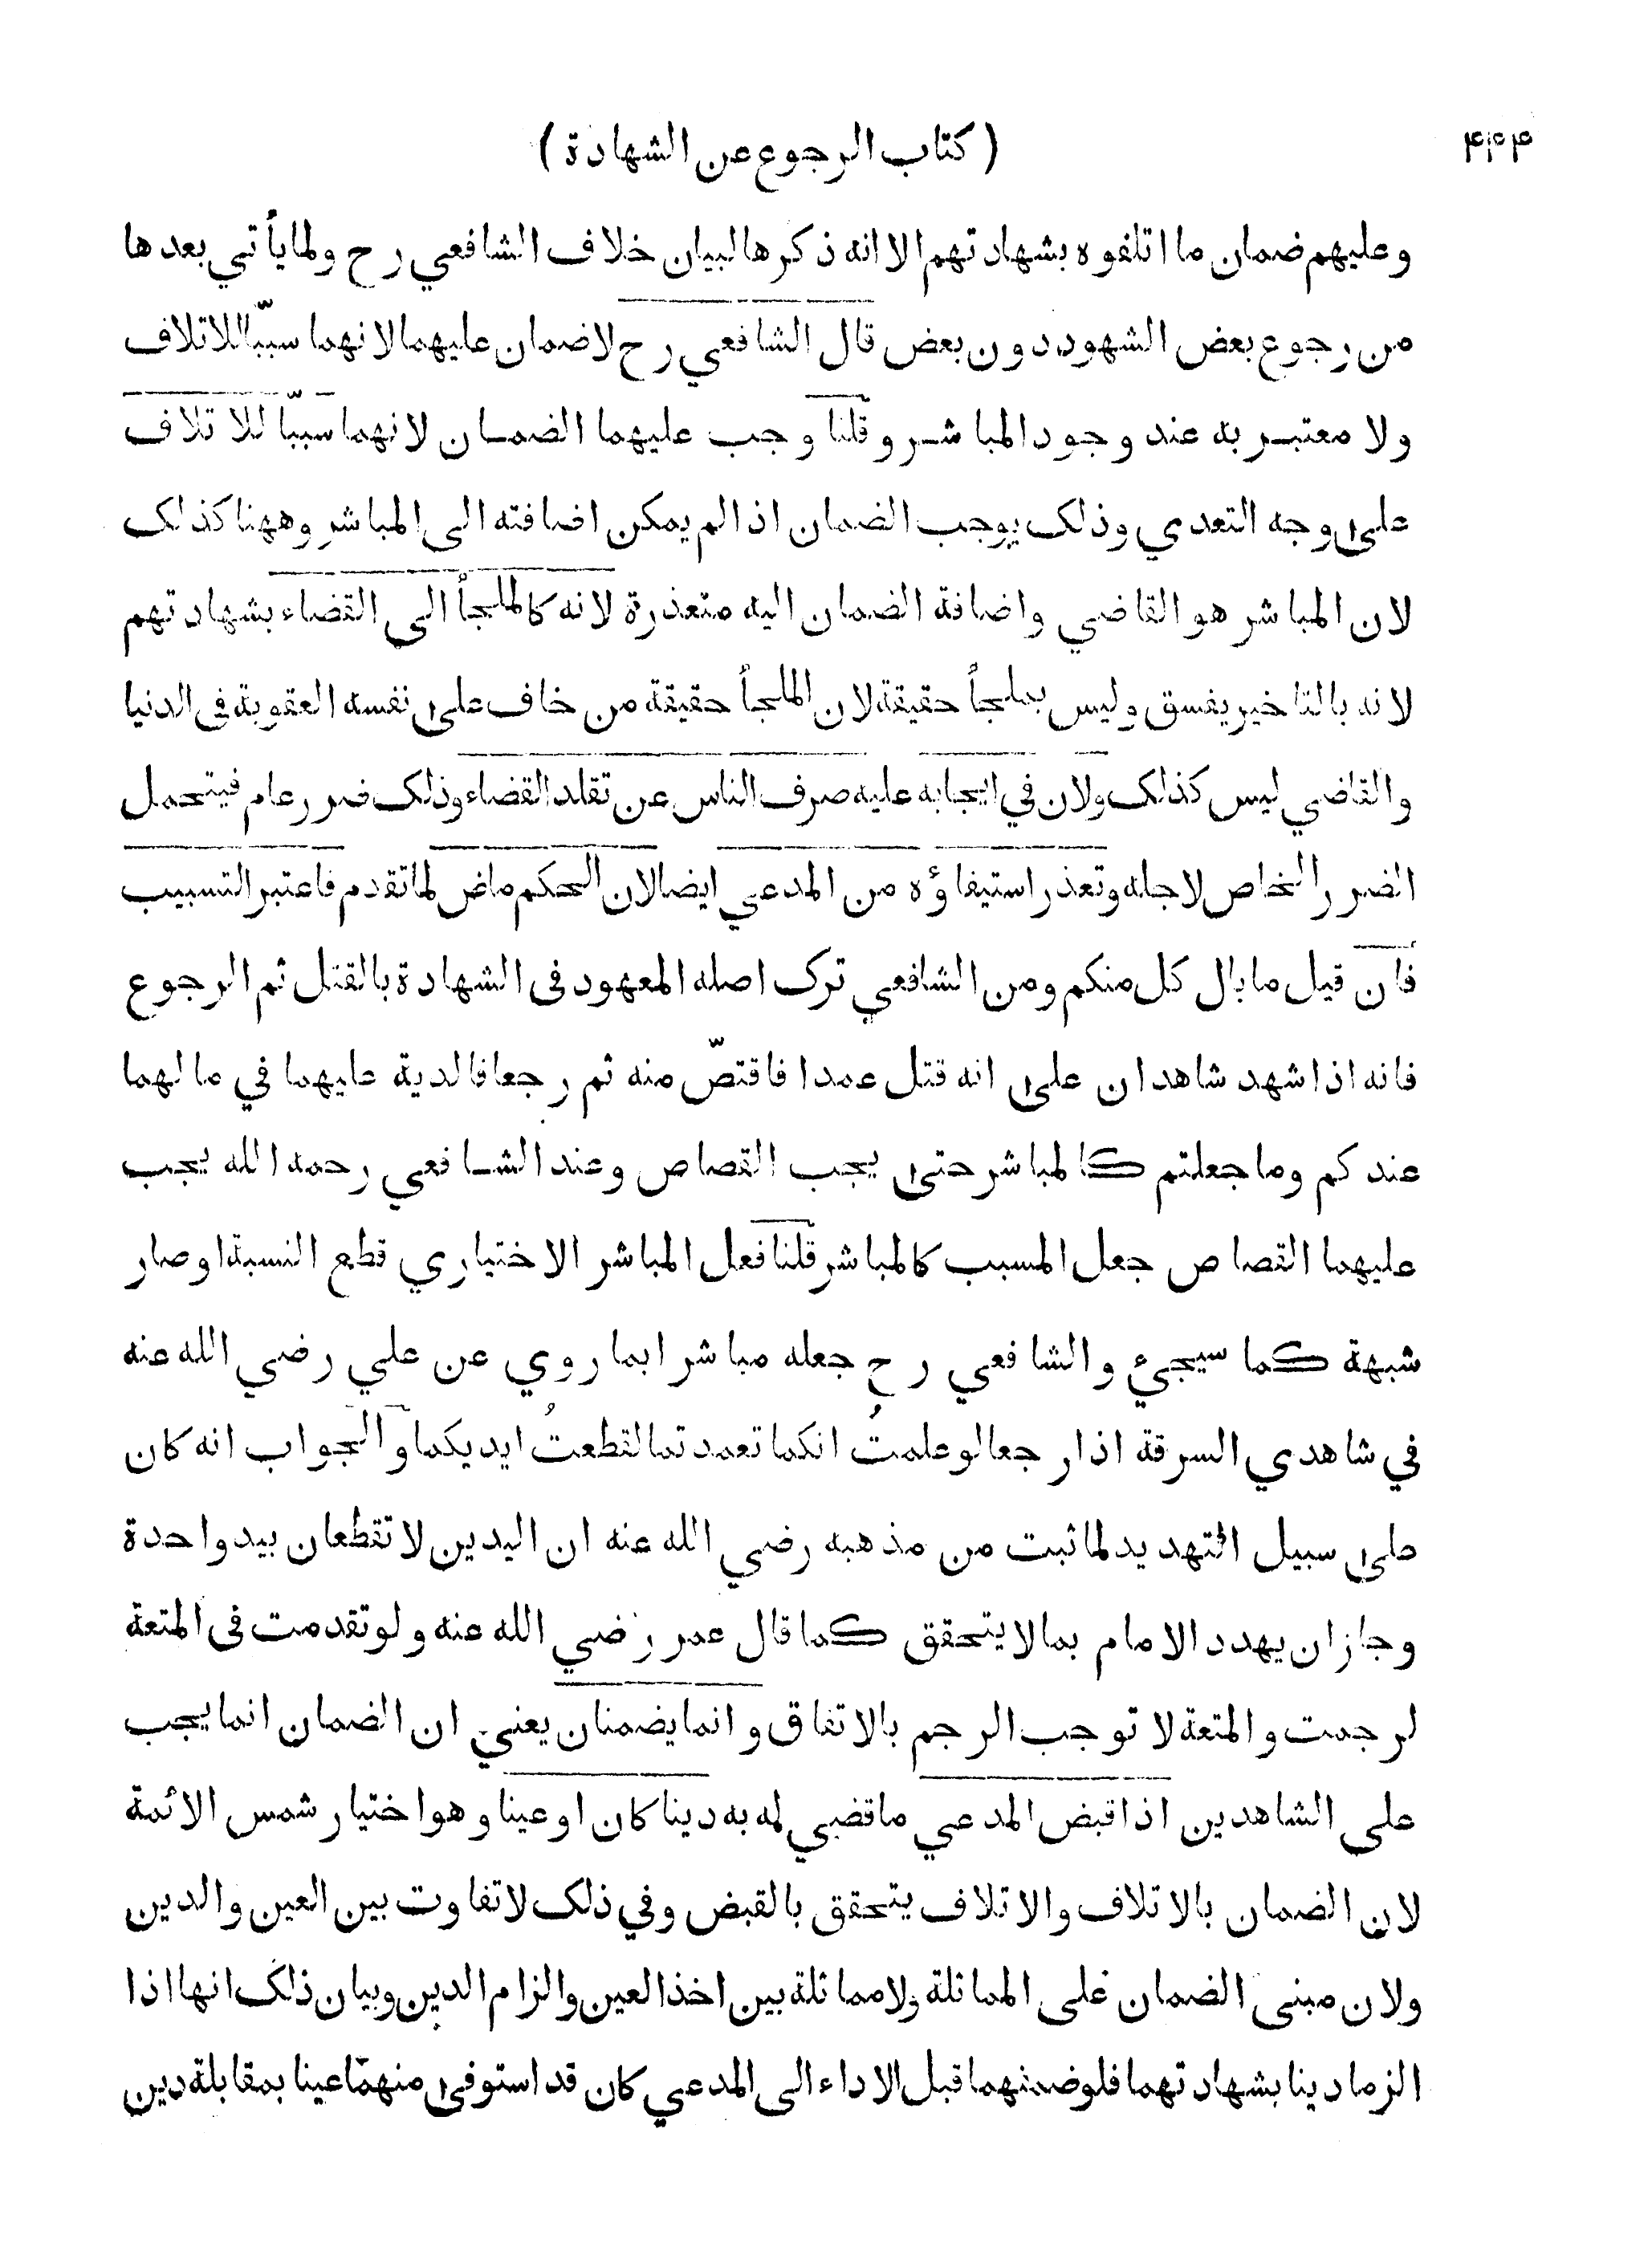 ( كتاب الرجوع عن الشهادة )
وعليهم ضمان ما اتلفوه بشهادتهم الا انه ذكرها لبيان خلاف الشافعي رح ولما يأتي بعدها
من رجوع بعض الشهود دون بعض قال الشافعي رح لا ضمان عليهما لانهما سببّا للاتلاف
ولا معتبر به عند وجود المباشر وقلنا وجب عليهما الضمان لانهما سببّا للاتلاف
على وجه التعدي وذلك يوجب الضمان اذا لم يمكن اضافته الى المباشر وههنا كذلك
لان المباشر هو القاضي واضافة الضمان اليه متعذرة لانه كالملجأ الى القضاء بشهادتهم
لانه بالتاخير يفسق وليس بملجأ حقيقة لان الملجأ حقيقة من خاف على نفسه العقوبة فى الدنيا
والقاضي ليس كذلك ولان في ايجابه عليه صرف الناس عن تقلد القضاء وذلك ضرر عام فيتحمل
الضرر الخاص لاجله وتعذر استيفاؤه من المدعي ايضا لان الحكم ماض لما تقدم فاعتبر التسبيب
فان قيل ما بال كل منكم ومن الشافعي ترك اصله المعهود فى الشهادة بالقتل ثم الرجوع
فانه اذا شهد شاهدان على انه قتل عمدا فاقتصّ منه ثم رجعا فالدية عليهما في مالهما
عندكم وما جعلتم كالمباشر حتى يجب القصاص وعند الشافعي رحمه الله يجب
عليهما القصاص جعل المسبب كالمباشر قلنا فعل المباشر الاختياري قطع النسبة او صار
شبهة كما سيجيء والشافعي رح جعله مباشرا بما روي عن علي رضي الله عنه
في شاهدي السرقة اذا رجعا لو علمتُ انكما تعمدتما لقطعتُ ايديكما والجواب انه كان
على سبيل التهديد لما ثبت من مذهبه رضي الله عنه ان اليدين لا تقطعان بيد واحدة
وجاز ان يهدد الامام بما لا يتحقق كما قال عمر رضي الله عنه ولو تقدمت فى المتعة
لرجمت والمتعة لا توجب الرجم بالاتفاق وانما يضمنان يعني ان الضمان انما يجب
على الشاهدين اذا قبض المدعي ما قضي له به دينا كان او عينا وهو اختيار شمس الائمة
لان الضمان بالاتلاف والاتلاف يتحقق بالقبض وفي ذلك لا تفاوت بين العين والدين
ولان مبنى الضمان على المماثلة ولا مماثلة بين اخذ العين والزام الدين وبيان ذلك انهما اذا
الزما دينا بشهادتهما فلو ضمنهما قبل الاداء الى المدعي كان قد استوفى منهما عينا بمقابلة دين